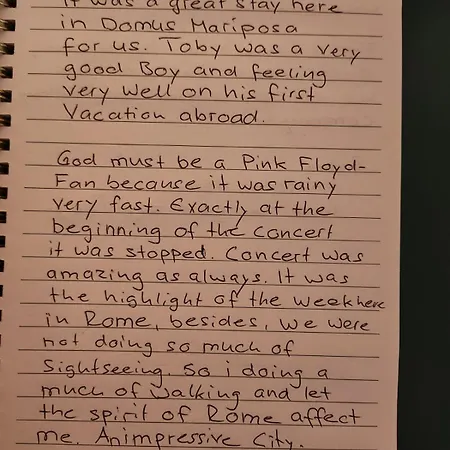 It was a great stay here
in Domus Mariposa
for us. Toby was a very
good Boy and feeling
very well on his first
Vacation abroad.
God must be a Pink Floyd-
Fan because it was rainy
very fast. Exactly at the
beginning of the concert
it was stopped. Concert was
amazing as always. It was
the highlight of the week here
in Rome, besides, we were
not doing so much of
Sightseeing. So i doing a
much of walking and let
the spirit of Rome affect
me. An impressive City.